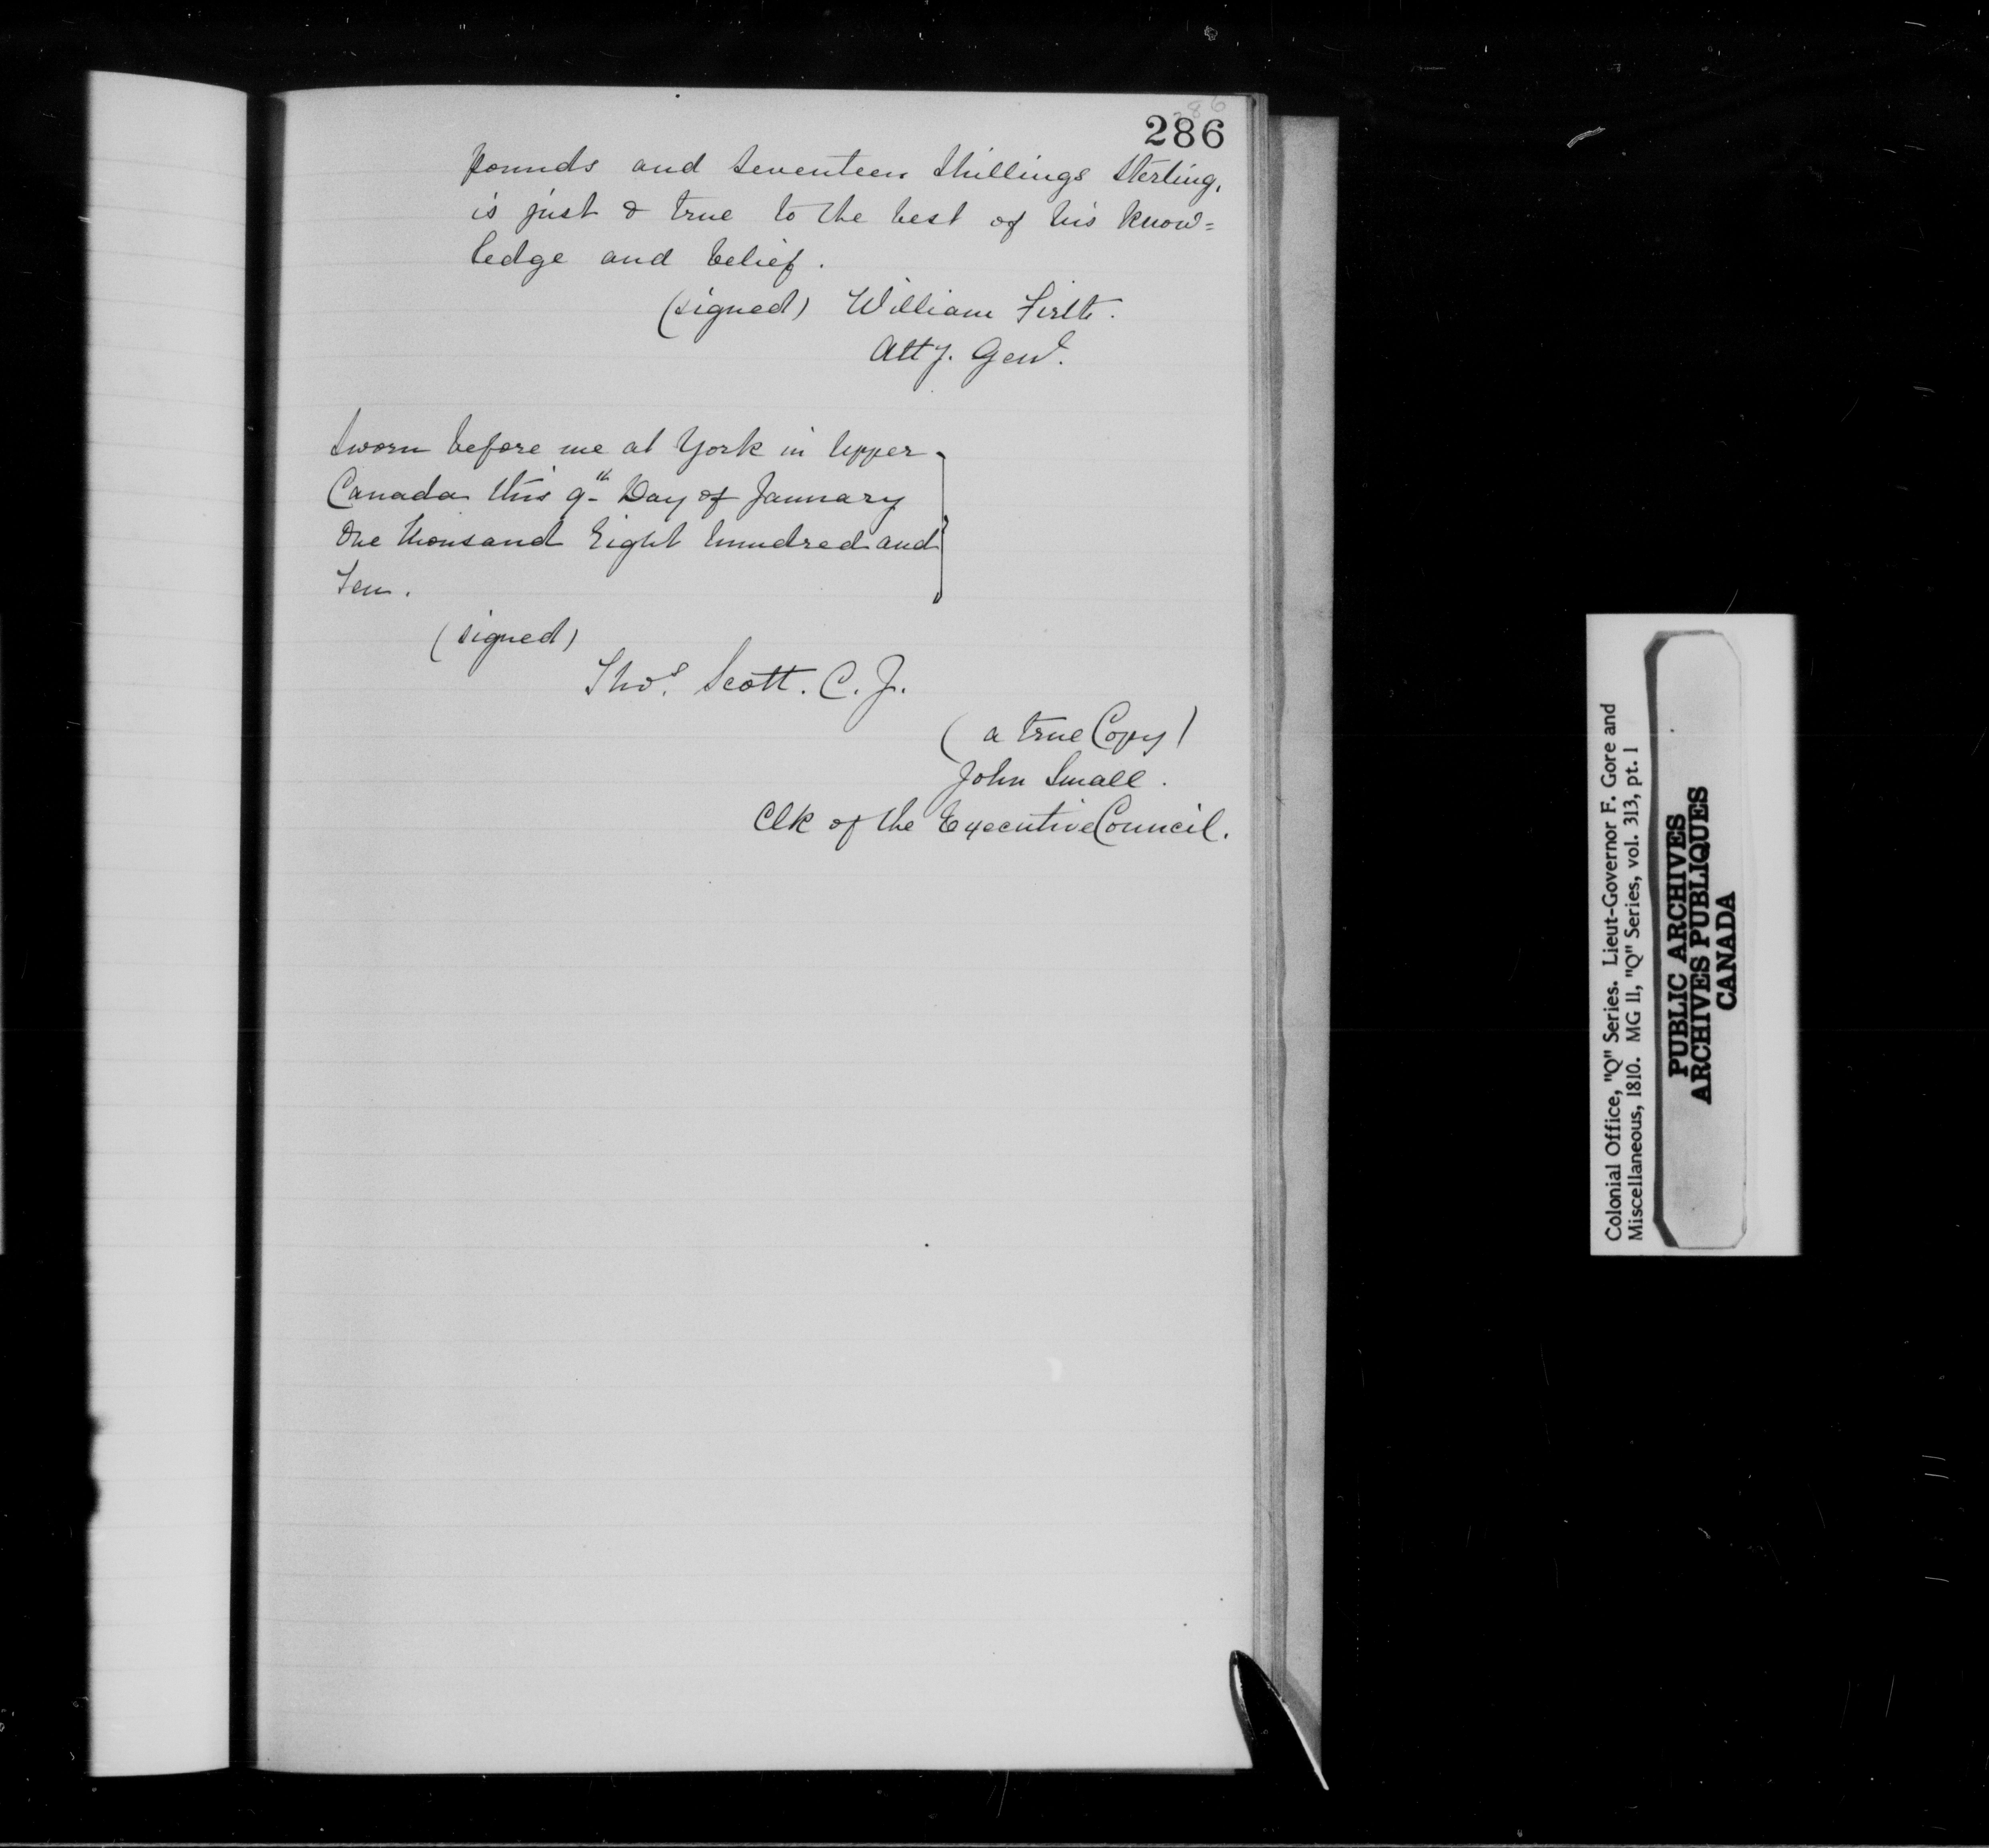 286
286
pounds and seventeen Shillings Sterling,
is just & true to the best of his know=
ledge and belief.
(signed) William Firth.
Atty. Genl.
Sworn before me at York in Upper
Canada this 9th Day of January
One thousand Eight hundred and
Ten.
(signed)
Thos. Scott. C. J.
(a true Copy)
John Small.
Clk of the Executive Council.
Colonial Office, "Q" Series. Lieut-Governor F. Gore and
Miscellaneous, 1810. MG 11, "Q" Series, vol. 313, pt. 1
PUBLIC ARCHIVES
ARCHIVES PUBLIQUES
CANADA